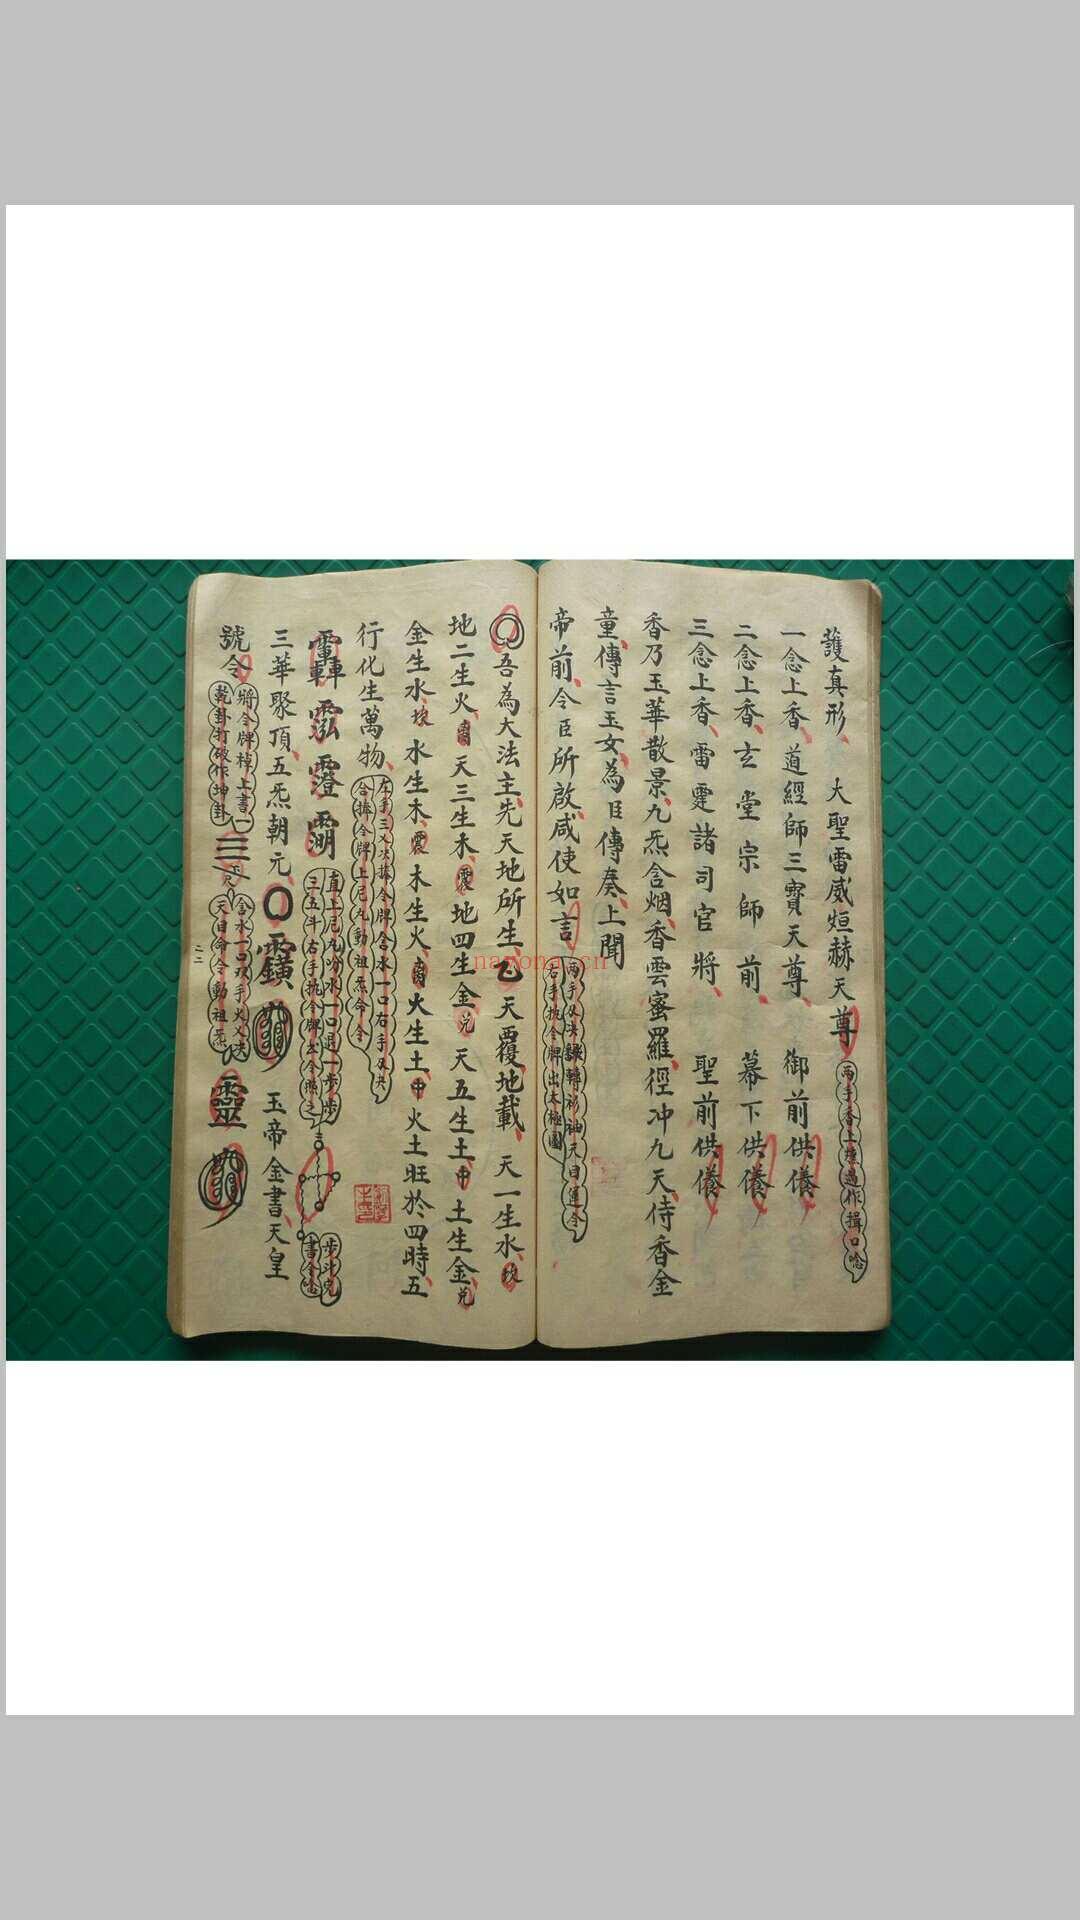 護真形 大聖雷威烜赫天尊
兩手香上壇過作揖口唸
一念上香道經師三寶天尊 御前供養
二念上香玄堂宗師前 幕下供養
三念上香雷霆諸司官將 聖前供養
香乃玉華散景九炁含烟香雲蜜羅徑冲九天侍香金
童傳言玉女為臣傳奏上聞
帝前令臣所啟咸使如言
兩手 轉衫袖天目運令
右手執令牌出太極圖
吾為大法主先天地所生 天覆地載 天一生水坎
地二生火离天三生木震地四生金兑天五生土中土生金兑
金生水坎水生木震木生火离火生土中火土旺於四時五
行化生萬物
左手三 令牌含水一口右手
合 令牌上 九動祖炁命令
轟 霐 霪
直上 九 水一口退一步步
三五斗右手執令牌 令 之
步斗完
書令唸
三華聚頂五炁朝元 玉帝金書天皇
號令
將令牌棹上書一
乾卦打破作坤卦
含水一口双手火
天目命令動祖炁
靈
二二
nayona.cn